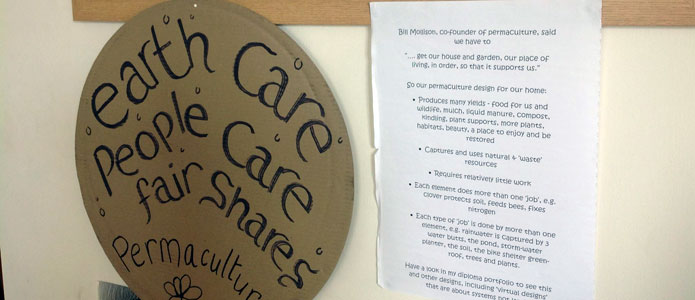 earth Care
People Care
fair Shares
Permacultur
Bill Mollison, co-founder of permaculture, said
we have to
".... get our house and garden, our place of
living, in order, so that it supports us."
So our permaculture design for our home:
• Produces many yields - food for us and
wildlife, mulch, liquid manure, compost,
kindling, plant supports, more plants,
habitats, beauty, a place to enjoy and be
restored
• Captures and uses natural & 'waste'
resources
• Requires relatively little work
• Each element does more than one 'job', e.g.
clover protects soil, feeds bees, fixes
nitrogen
• Each type of 'job' is done by more than one
element, e.g. rainwater is captured by 3
water butts, the pond, storm-water
planter, the soil, the bike shelter green-
roof, trees and plants.
Have a look in my diploma portfolio to see this
and other designs, including 'virtual designs'
that are about systems not